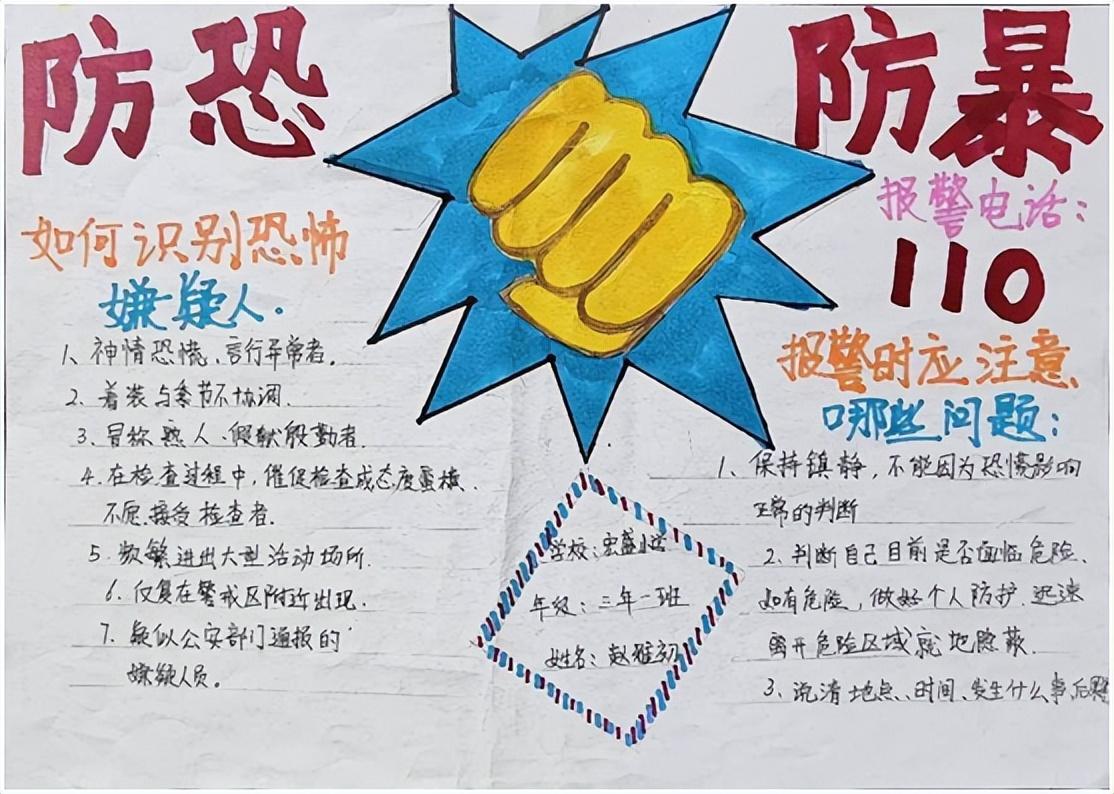 防恐
防暴
如何识别恐怖
嫌疑人.
1、神情恐慌、言行异常者.
2、着装与季节不协调.
3、冒称熟人、假献殷勤者.
4、在检查过程中,催促检查或态度蛮横、
不愿接受检查者.
5、频繁进出大型活动场所.
6、仅复在警戒区附近出现.
7、疑似公安部门通报的
嫌疑人员。
报警电话:
110
报警时应注意
哪些问题:
1、保持镇静,不能因为恐慌影响
正常的判断
2、判断自己目前是否面临危险、
如有危险,做好个人防护.迅速
离开危险区域就地隐蔽.
3、说清地点、时间、发生什么事后
学校:宏盛小学
年级:三年一班
姓名:赵雅初